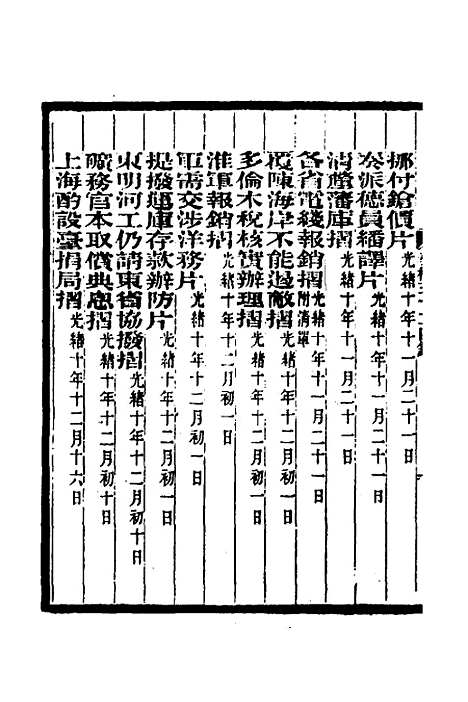 挪付鎗價片光緒十年十一月二十一日
奏派德員繙譯片光緒十年十一月二十一日
清釐藩庫摺光緒十年十一月二十一日
各省電綫報銷摺附清單光緒十年十一月二十一日
覆陳海岸不能過敵摺光緒十年十二月初一日
多倫木稅核實辦理摺光緒十年十二月初一日
淮軍報銷摺光緒十年十二月初一日
軍需交涉洋務片光緒十年十二月初一日
提撥運庫存款辦防片光緒十年十二月初一日
東明河工仍請東省協撥摺光緒十年十二月初十日
礦務官本取償典息摺光緒十年十二月初十日
上海酌設臺捐局摺光緒十年十二月十六日